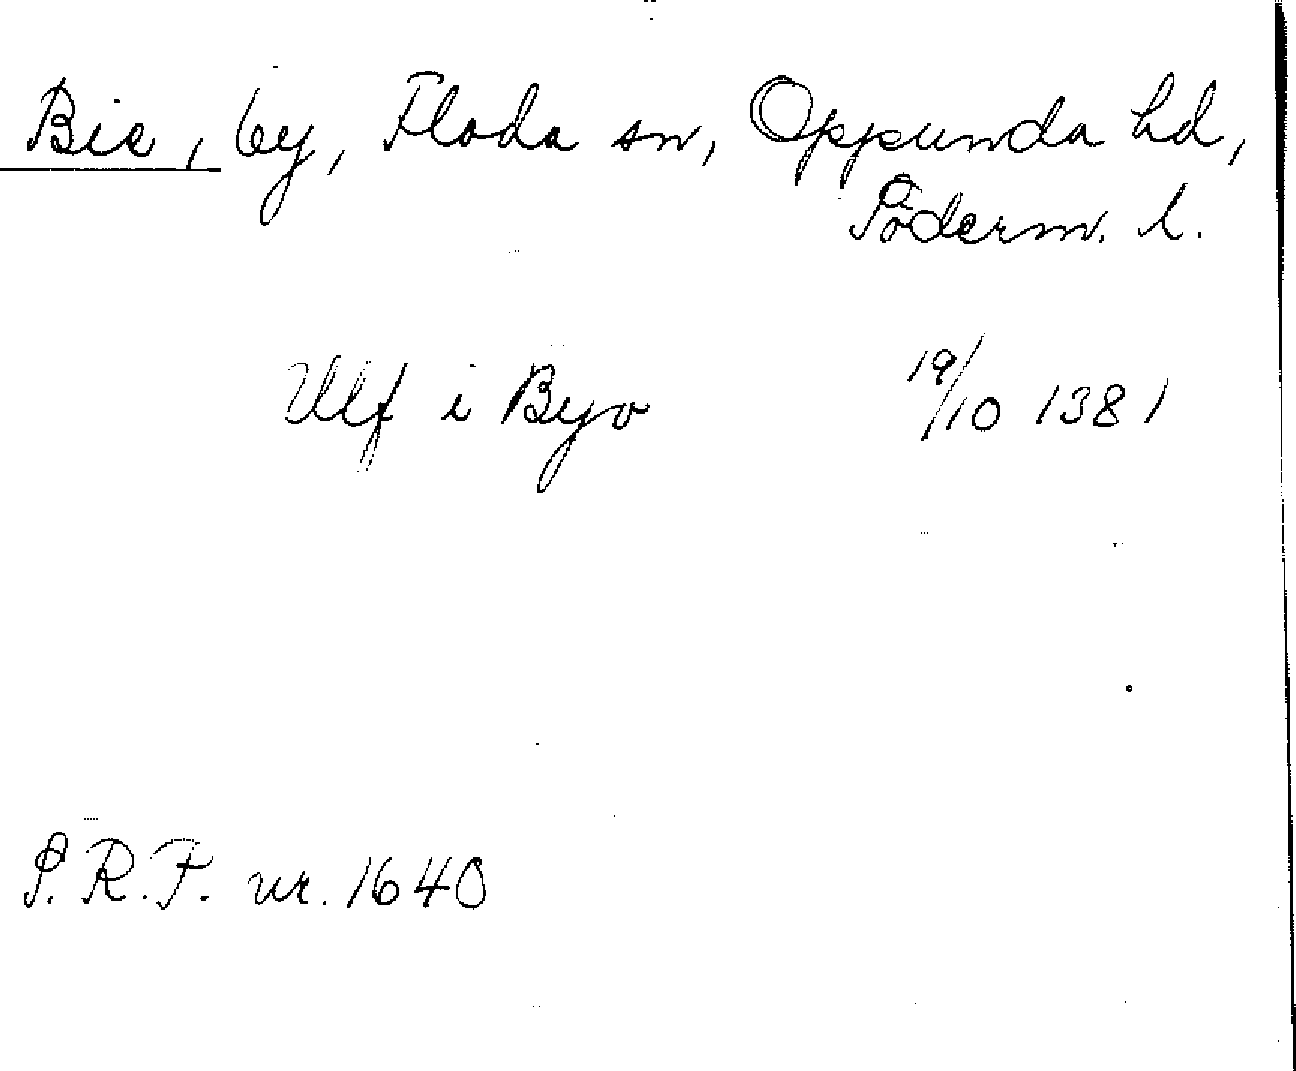 Bie, by, Floda sn, Oppunda hd,
Söderm. l.
Ulf i Byo 19/10 1381
S.R.P. nr. 1640